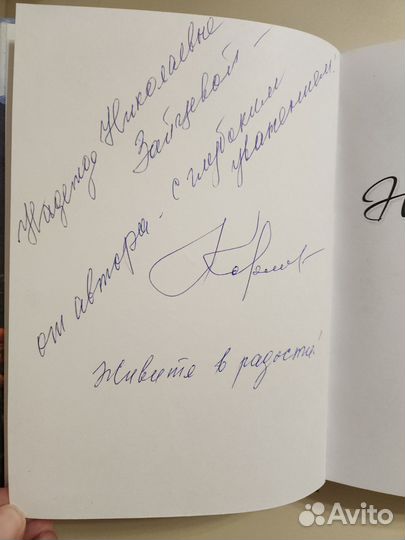 Надежде Николаевне
Зайцевой –
от автора – с глубоким
уважением!
Живите в радости!
Avito